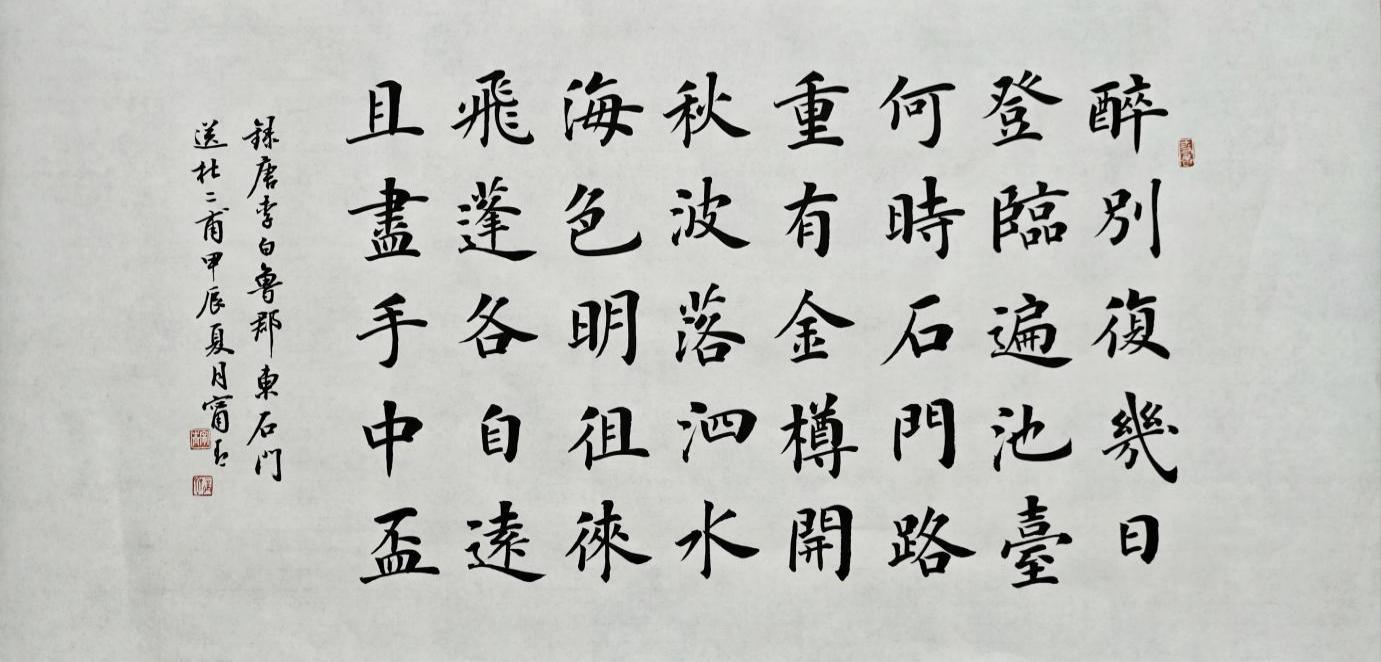 醉別復幾日
登臨遍池臺
何時石門路
重有金樽開
秋波落泗水
海色明徂徠
飛蓬各自遠
且盡手中盃
錄唐李白魯郡東石門
送杜二甫甲辰夏月甯